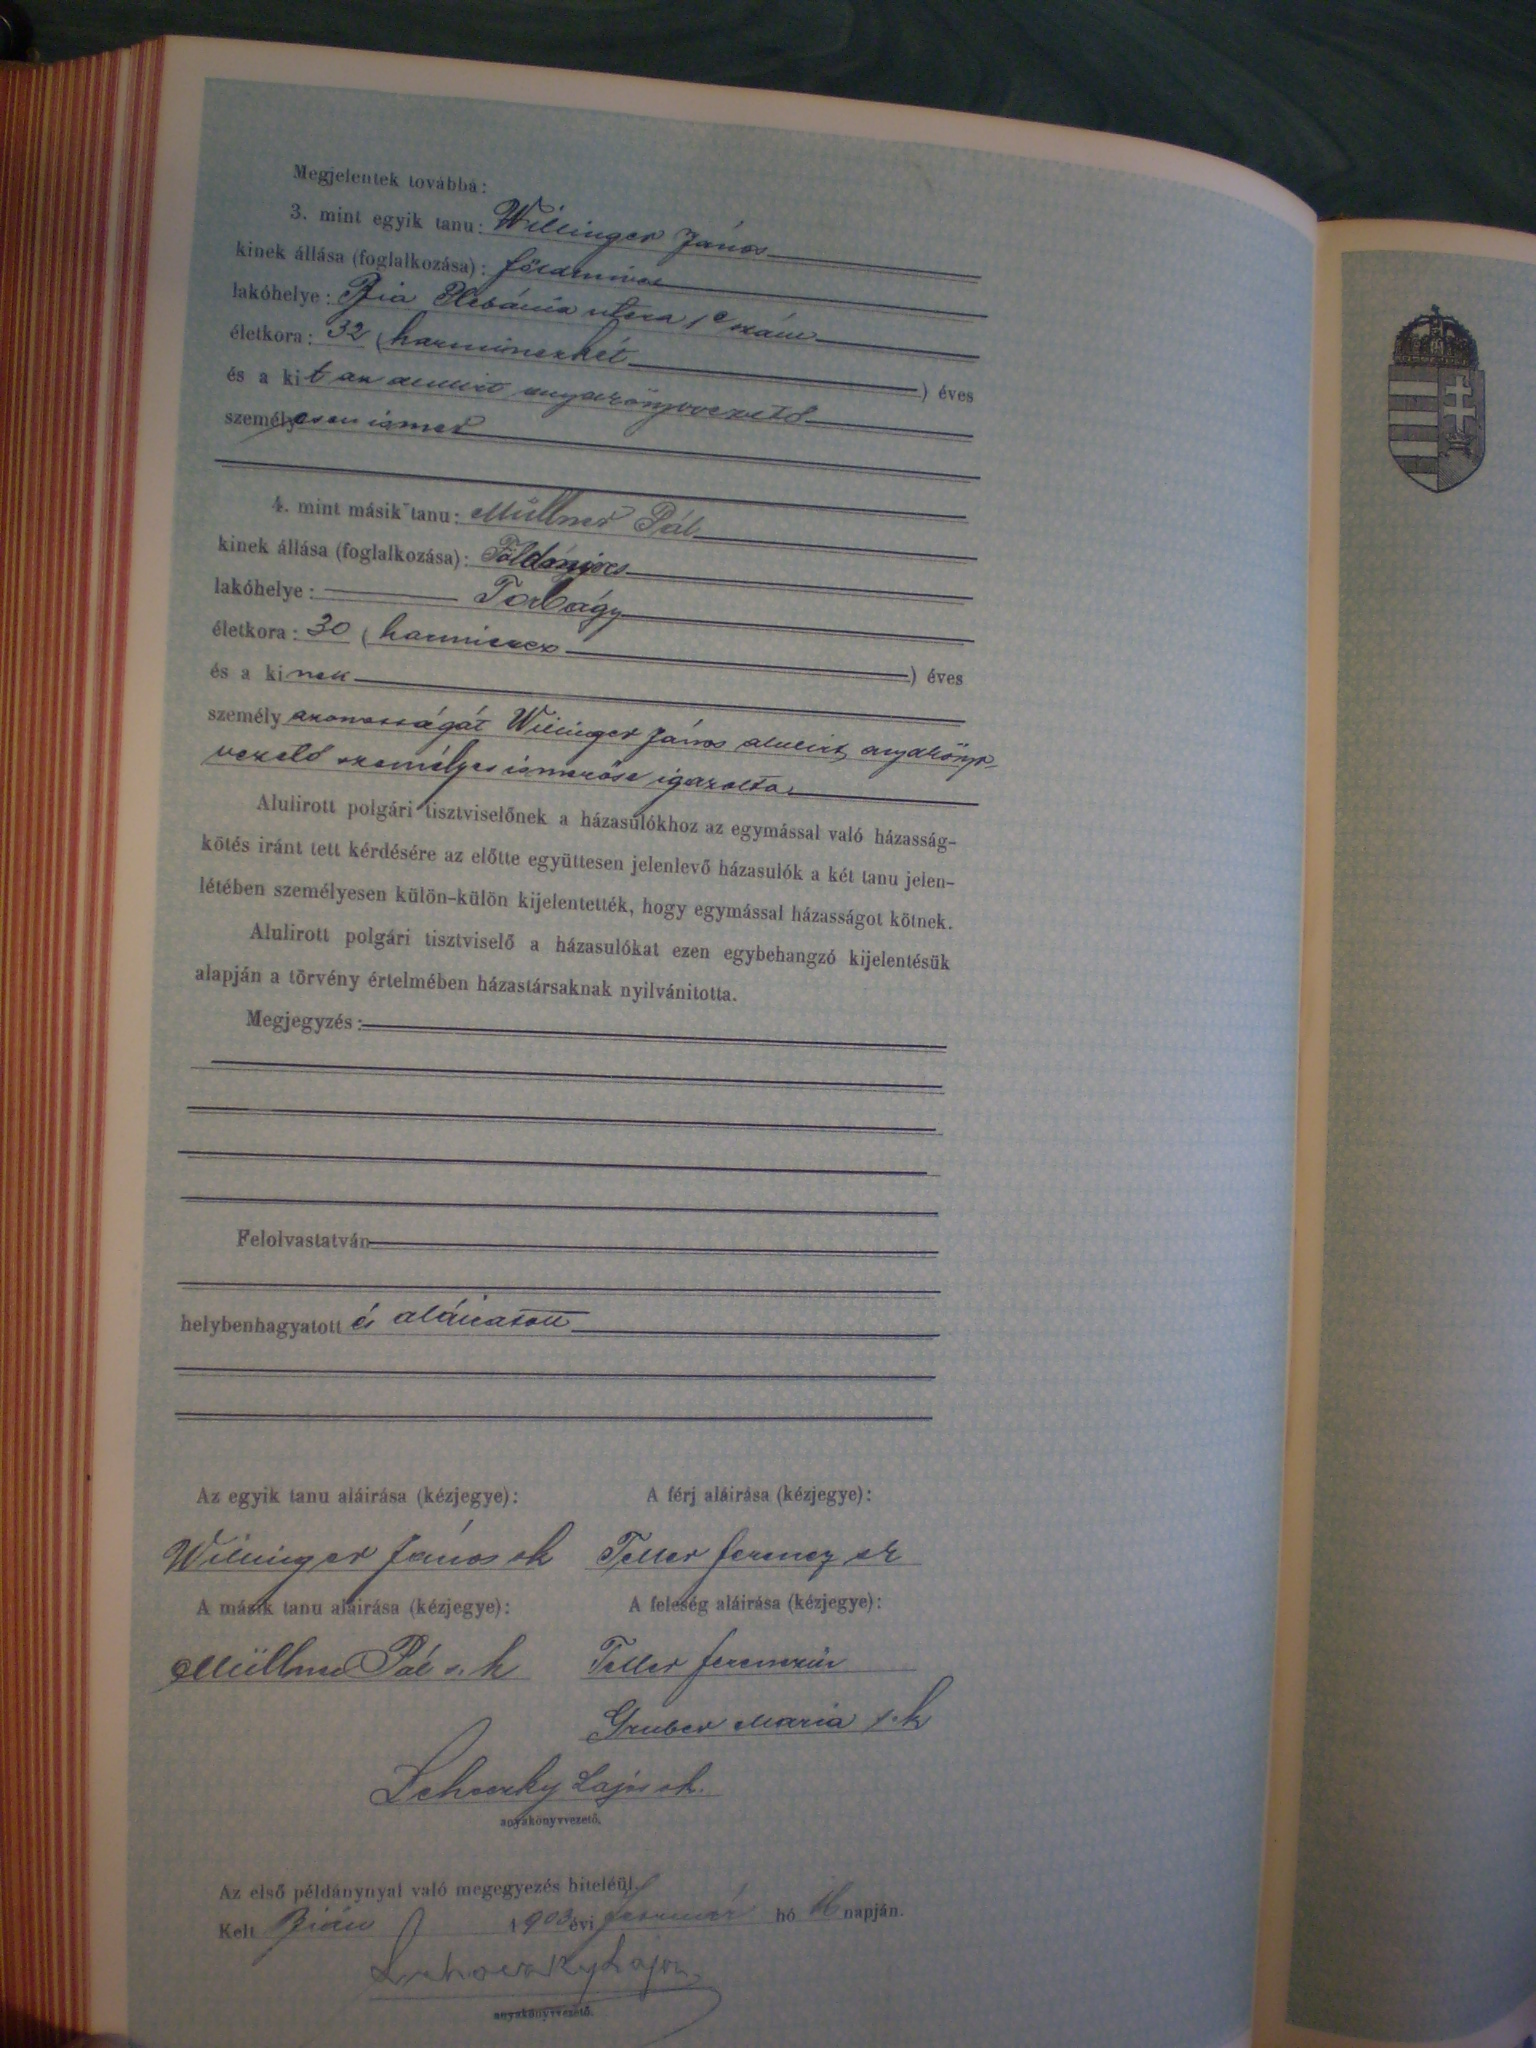 Megjelentek továbbá:
3. mint egyik tanu: Willinger János
kinek állása (foglalkozása): földmives
lakóhelye: Bia Plebánia utcza szám
életkora: 32 (harminczkét ) éves
és a kit az alulirt anyakönyvvezető
személyesen ismer
4. mint másik tanu: Müllner Pál
kinek állása (foglalkozása): Földmives
lakóhelye: Torbágy
életkora: 30 (harmincz ) éves
és a kinek
személyazonosságát Willinger János alulirt anyakönyv-
vezető személyes ismerőse igazolta.
Alulirott polgári tisztviselőnek a házasulókhoz az egymással való házasság-
kötés iránt tett kérdésére az előtte együttesen jelenlevő házasulók a két tanu jelen-
létében személyesen külön-külön kijelentették, hogy egymással házasságot kötnek.
Alulirott polgári tisztviselő a házasulókat ezen egybehangzó kijelentésük
alapján a törvény értelmében házastársaknak nyilvánitotta.
Megjegyzés:
Felolvastatván
helybenhagyatott és aláiratott
Az egyik tanu aláirása (kézjegye): A férj aláirása (kézjegye):
Willinger János sk Teller Ferencz sk
A másik tanu aláirása (kézjegye): A feleség aláirása (kézjegye):
Müllner Pál s. k Teller Ferenczné
Gruber Maria s. k
Lehoczky Lajos sk.
anyakönyvvezető.
Az első példánynyal való megegyezés hiteléül.
Kelt Bián 1903 évi február hó napján.
Lehoczky Lajos
anyakönyvvezető.